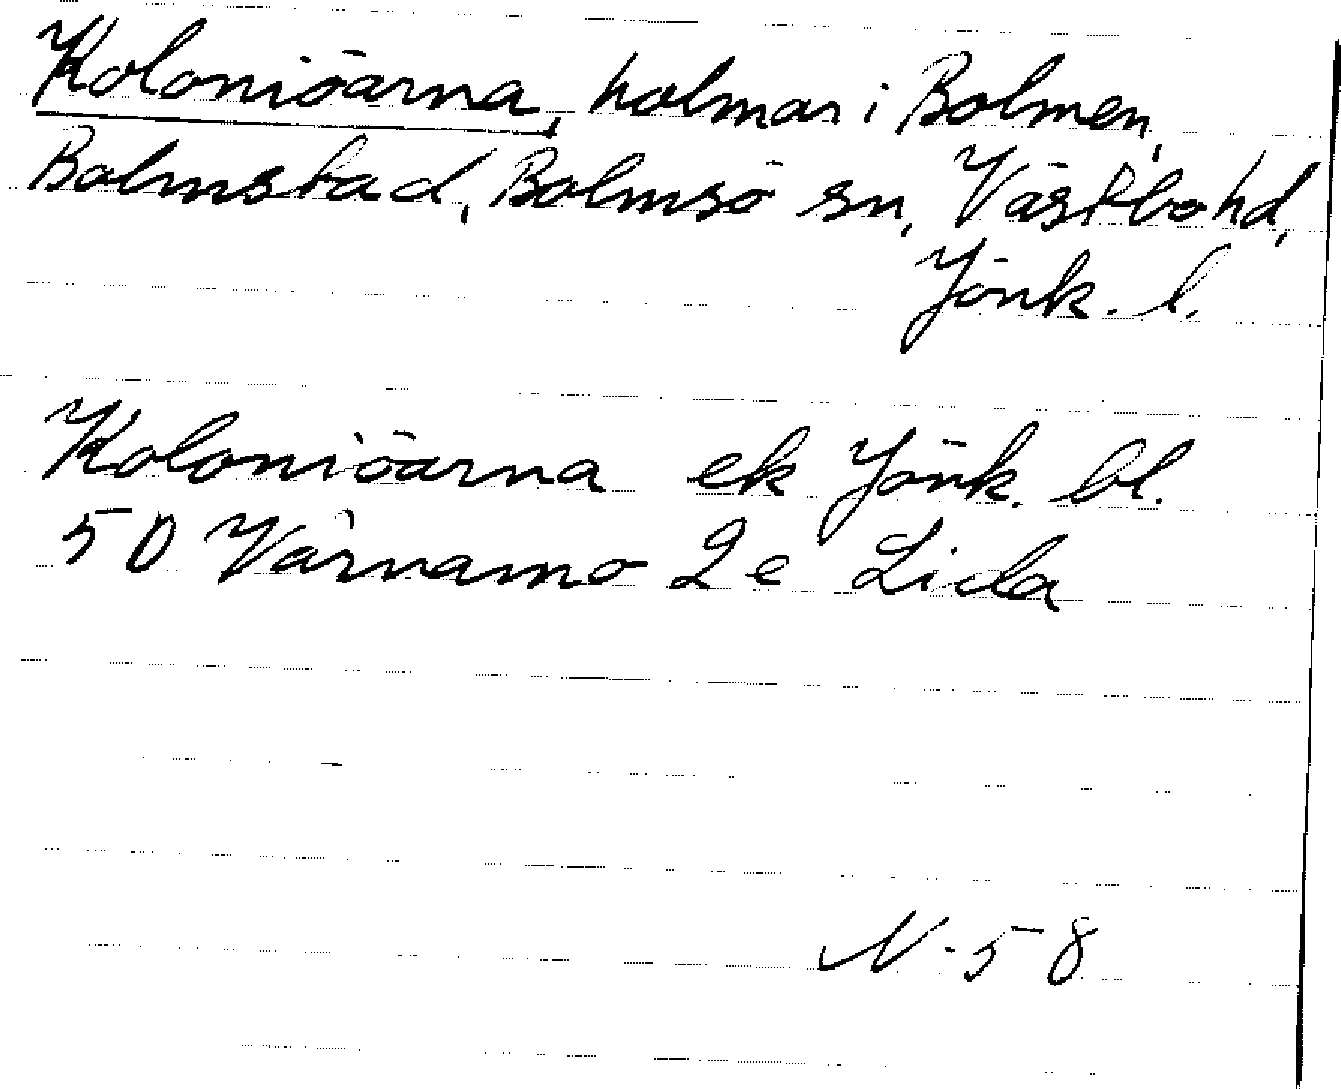 Koloniöarna, holmar i Bolmen,
Bolmstad, Bolmsö sn, Västbo hd,
Jönk. l.
Koloniöarna ek Jönk. bl.
50 Värnamo 2e Lida
N-58